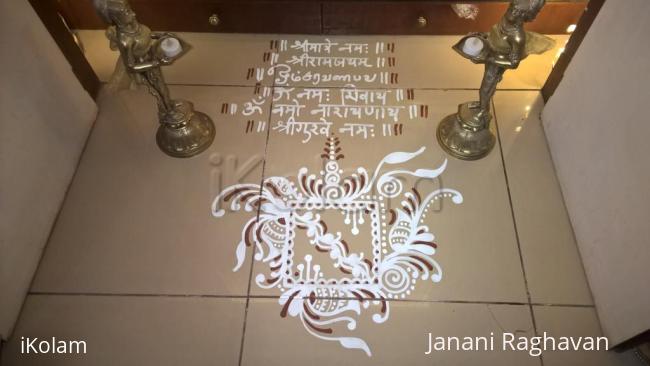 ॥ श्रीमात्रे नमः ॥
॥ श्रीरामजयम ॥
॥ ॐ नमः शिवाय ॥
॥ ॐ नमो नारायणाय ॥
॥ श्रीगुरवे नमः ॥
iKolam
iKolam
Janani Raghavan